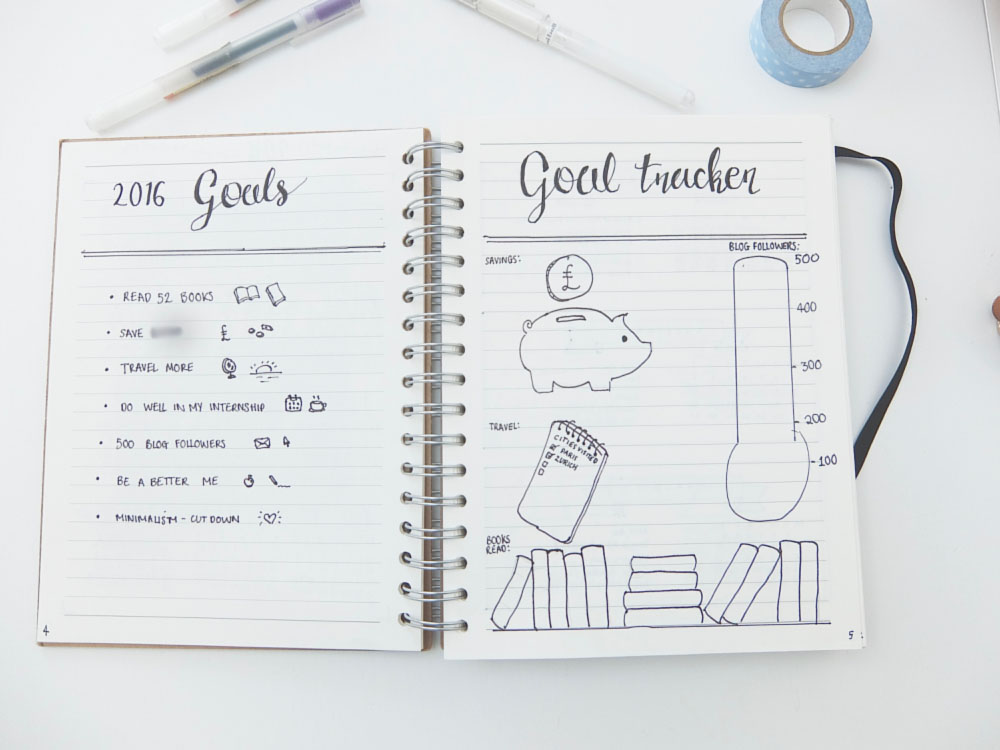 2016 Goals
• READ 52 BOOKS
• SAVE £
• TRAVEL MORE
• DO WELL IN MY INTERNSHIP
• 500 BLOG FOLLOWERS
• BE A BETTER ME
• MINIMALISM - CUT DOWN
4
Goal tracker
SAVINGS:
£
BLOG FOLLOWERS:
500
400
300
200
100
TRAVEL:
CITIES VISITED
PARIS
ZURICH
BOOKS
READ:
5